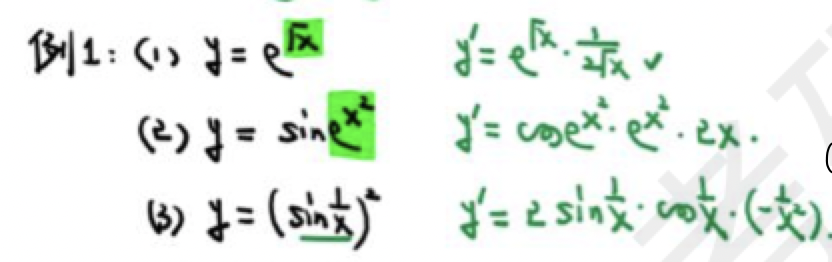 例1: (1) y = e^{√x} y' = e^{√x} · \frac{1}{2√x} ✓
(2) y = sin e^{x^2} y' = cos e^{x^2} · e^{x^2} · 2x .
(3) y = (sin \frac{1}{x})^2 y' = 2 sin \frac{1}{x} · cos \frac{1}{x} · (-\frac{1}{x^2}).